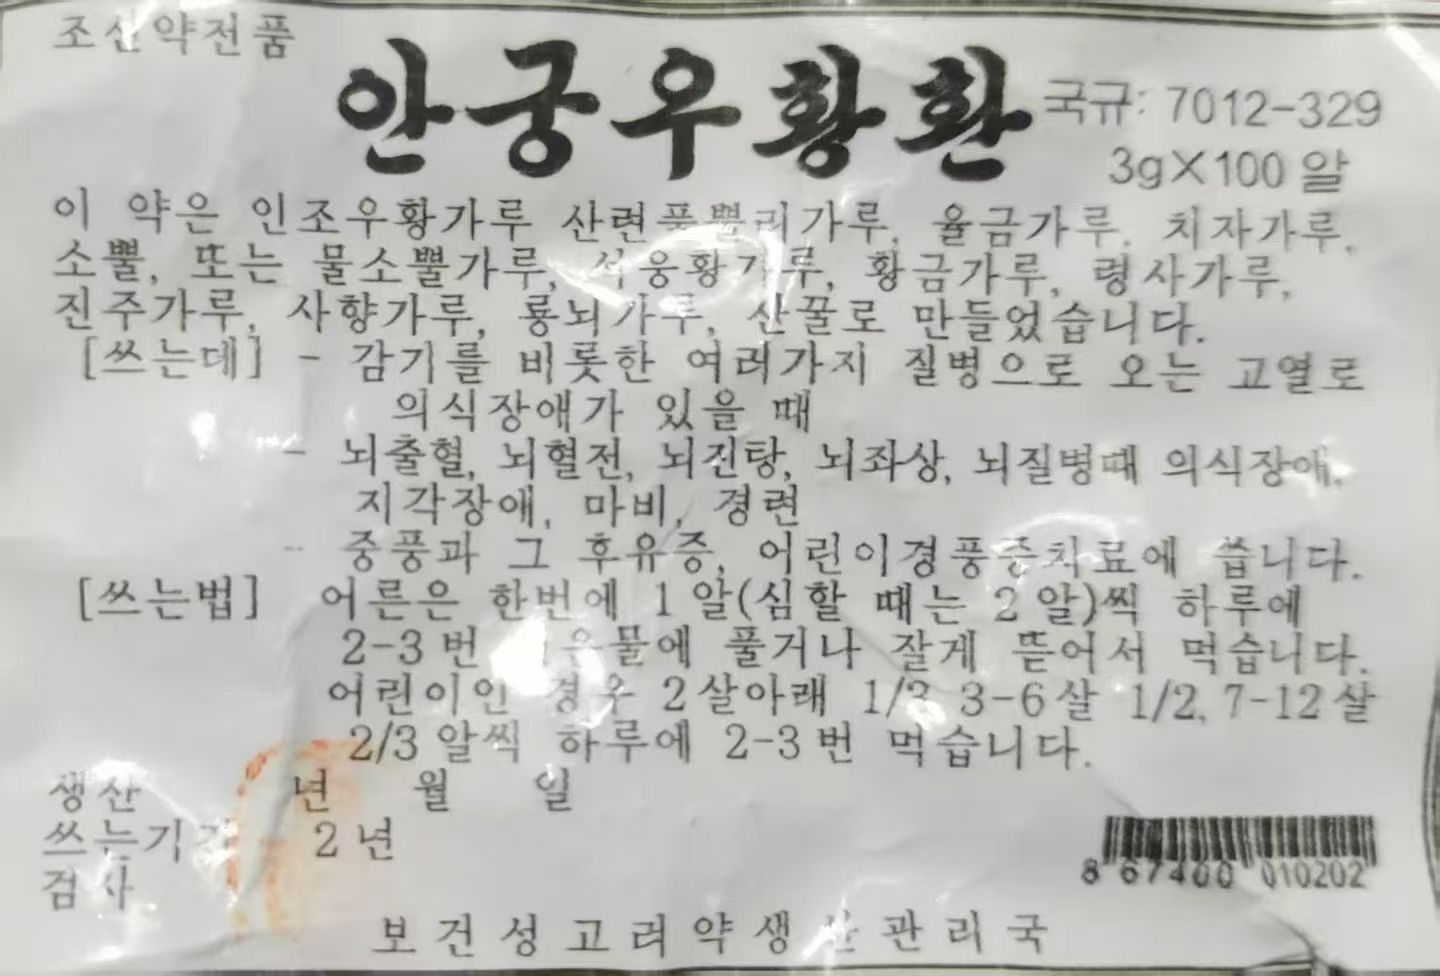 조선약전품
안궁우황환
국규: 7012-329
3g×100 알
이 약은 인조우황가루 산련풍뿔리가루, 율금가루, 치자가루,
소뿔, 또는 물소뿔가루, 석웅황가루, 황금가루, 령사가루,
진주가루, 사향가루, 룡뇌가루, 산꿀로 만들었습니다.
[쓰는데] - 감기를 비롯한 여러가지 질병으로 오는 고열로
의식장애가 있을 때
- 뇌출혈, 뇌혈전, 뇌진탕, 뇌좌상, 뇌질병때 의식장애,
지각장애, 마비, 경련
- 중풍과 그 후유증, 어린이경풍증치료에 씁니다.
[쓰는법] 어른은 한번에 1 알(심할 때는 2 알)씩 하루에
2-3 번 풀거나 잘게 뜯어서 먹습니다.
어린이인 경우 2살아래 1/3, 3-6살 1/2, 7-12살
2/3 알씩 하루에 2-3 번 먹습니다.
생산 년 월 일
쓰는기간 2 년
검사
8 67400 010202
보건성고려약생산관리국